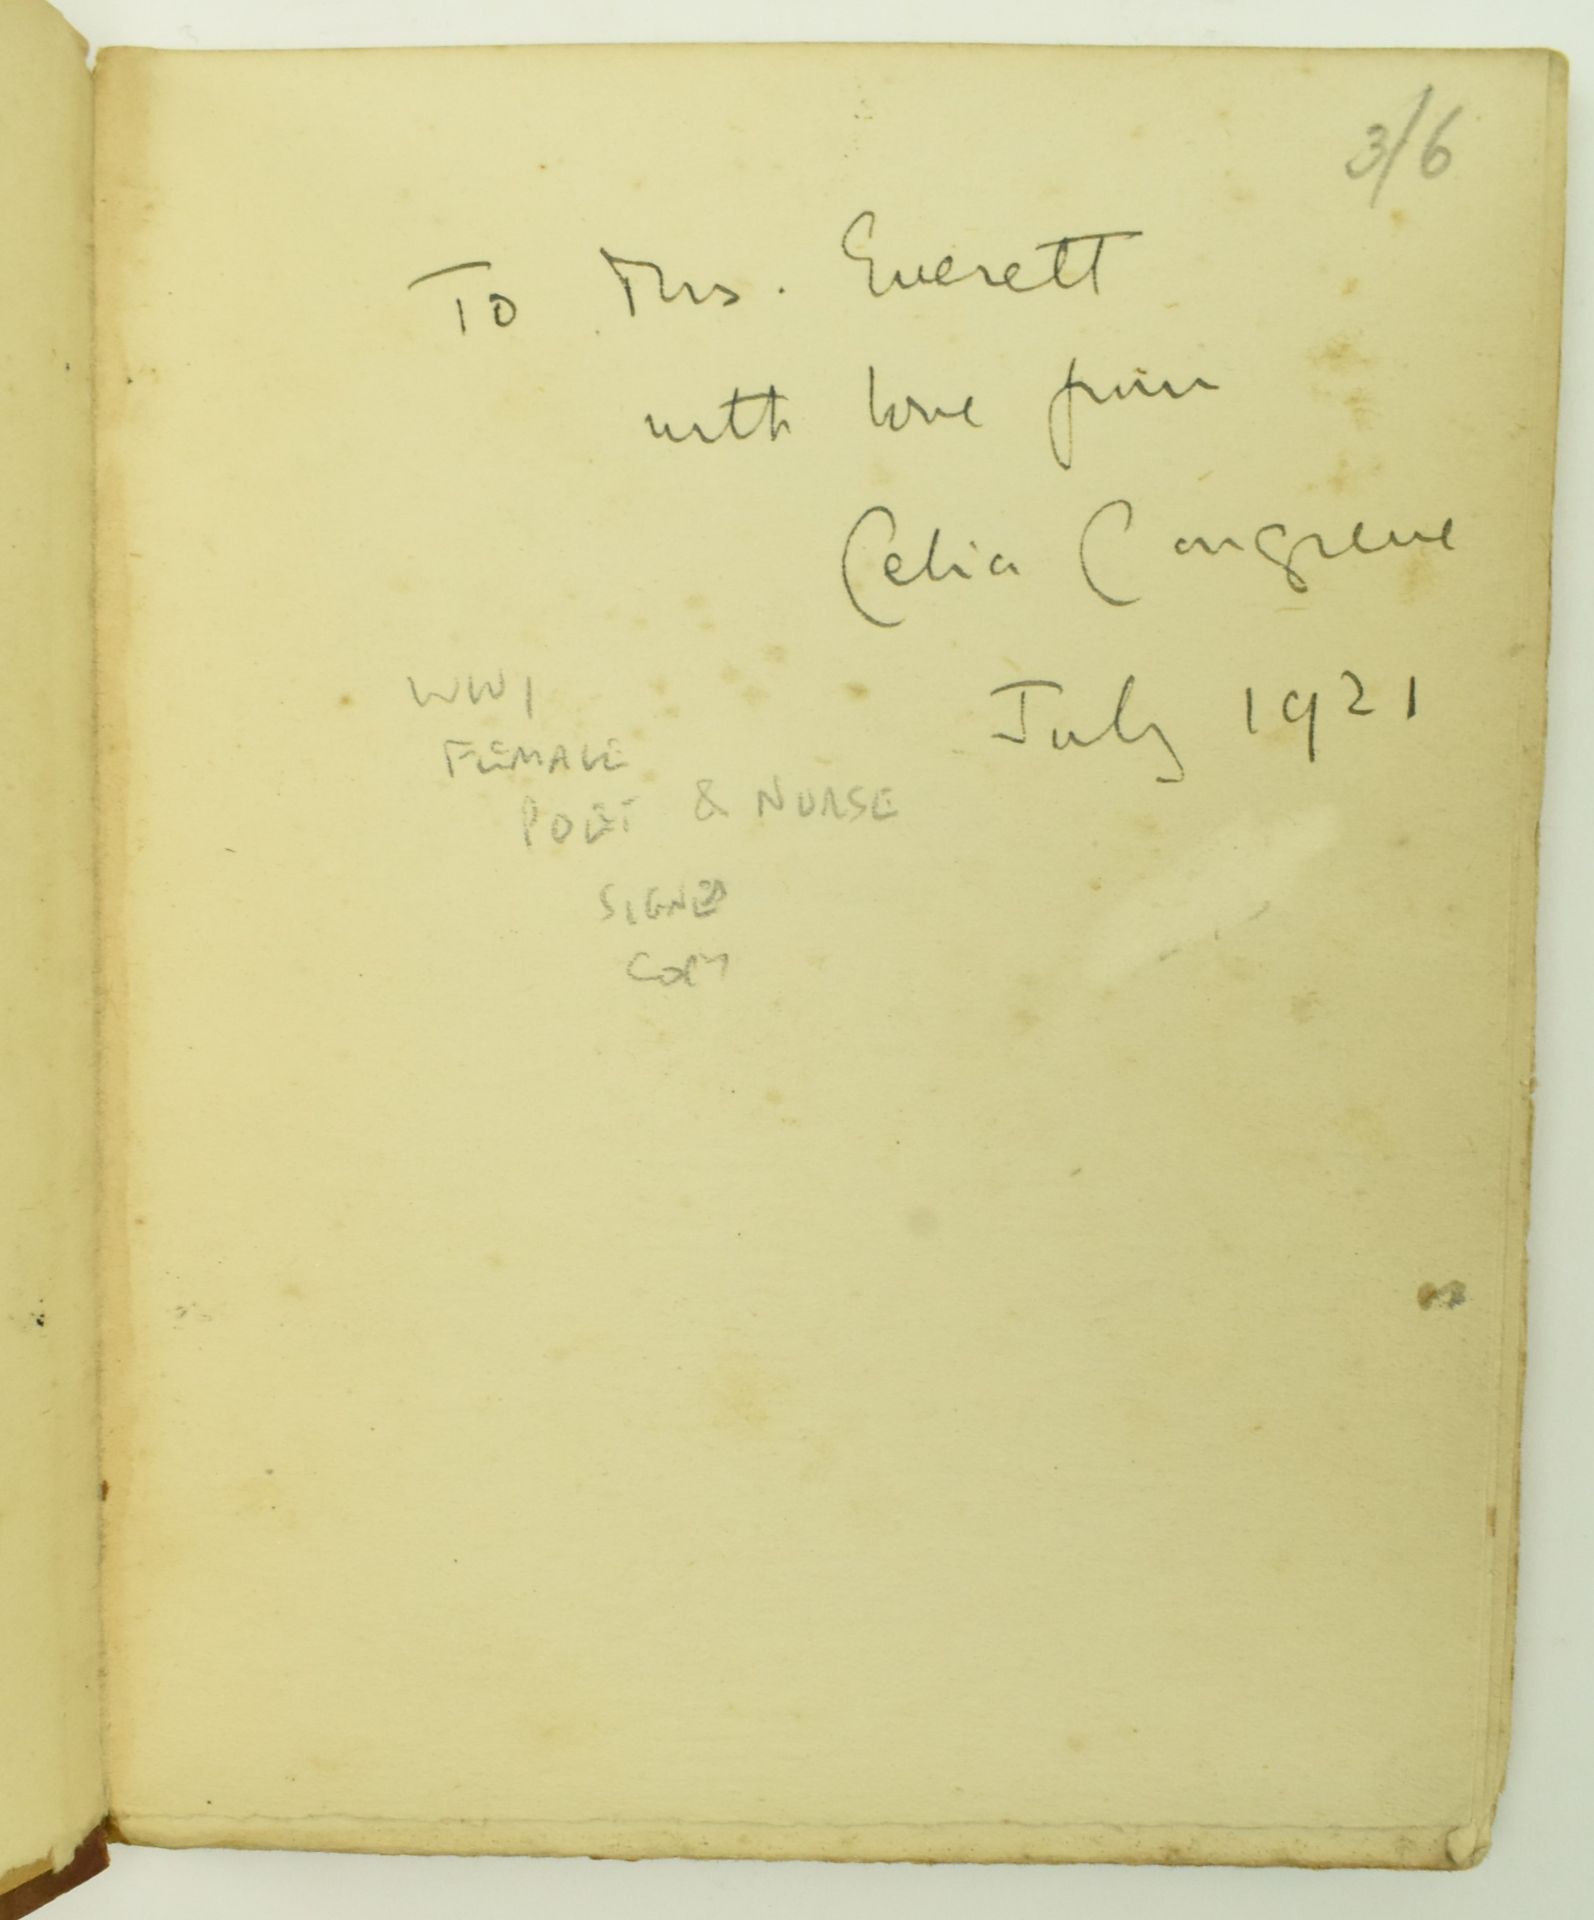 3/6
To Mrs. Everett
with love from
Celia Congreve
July 1921
WW1
FEMALE
POET & NURSE
SIGNED
COPY